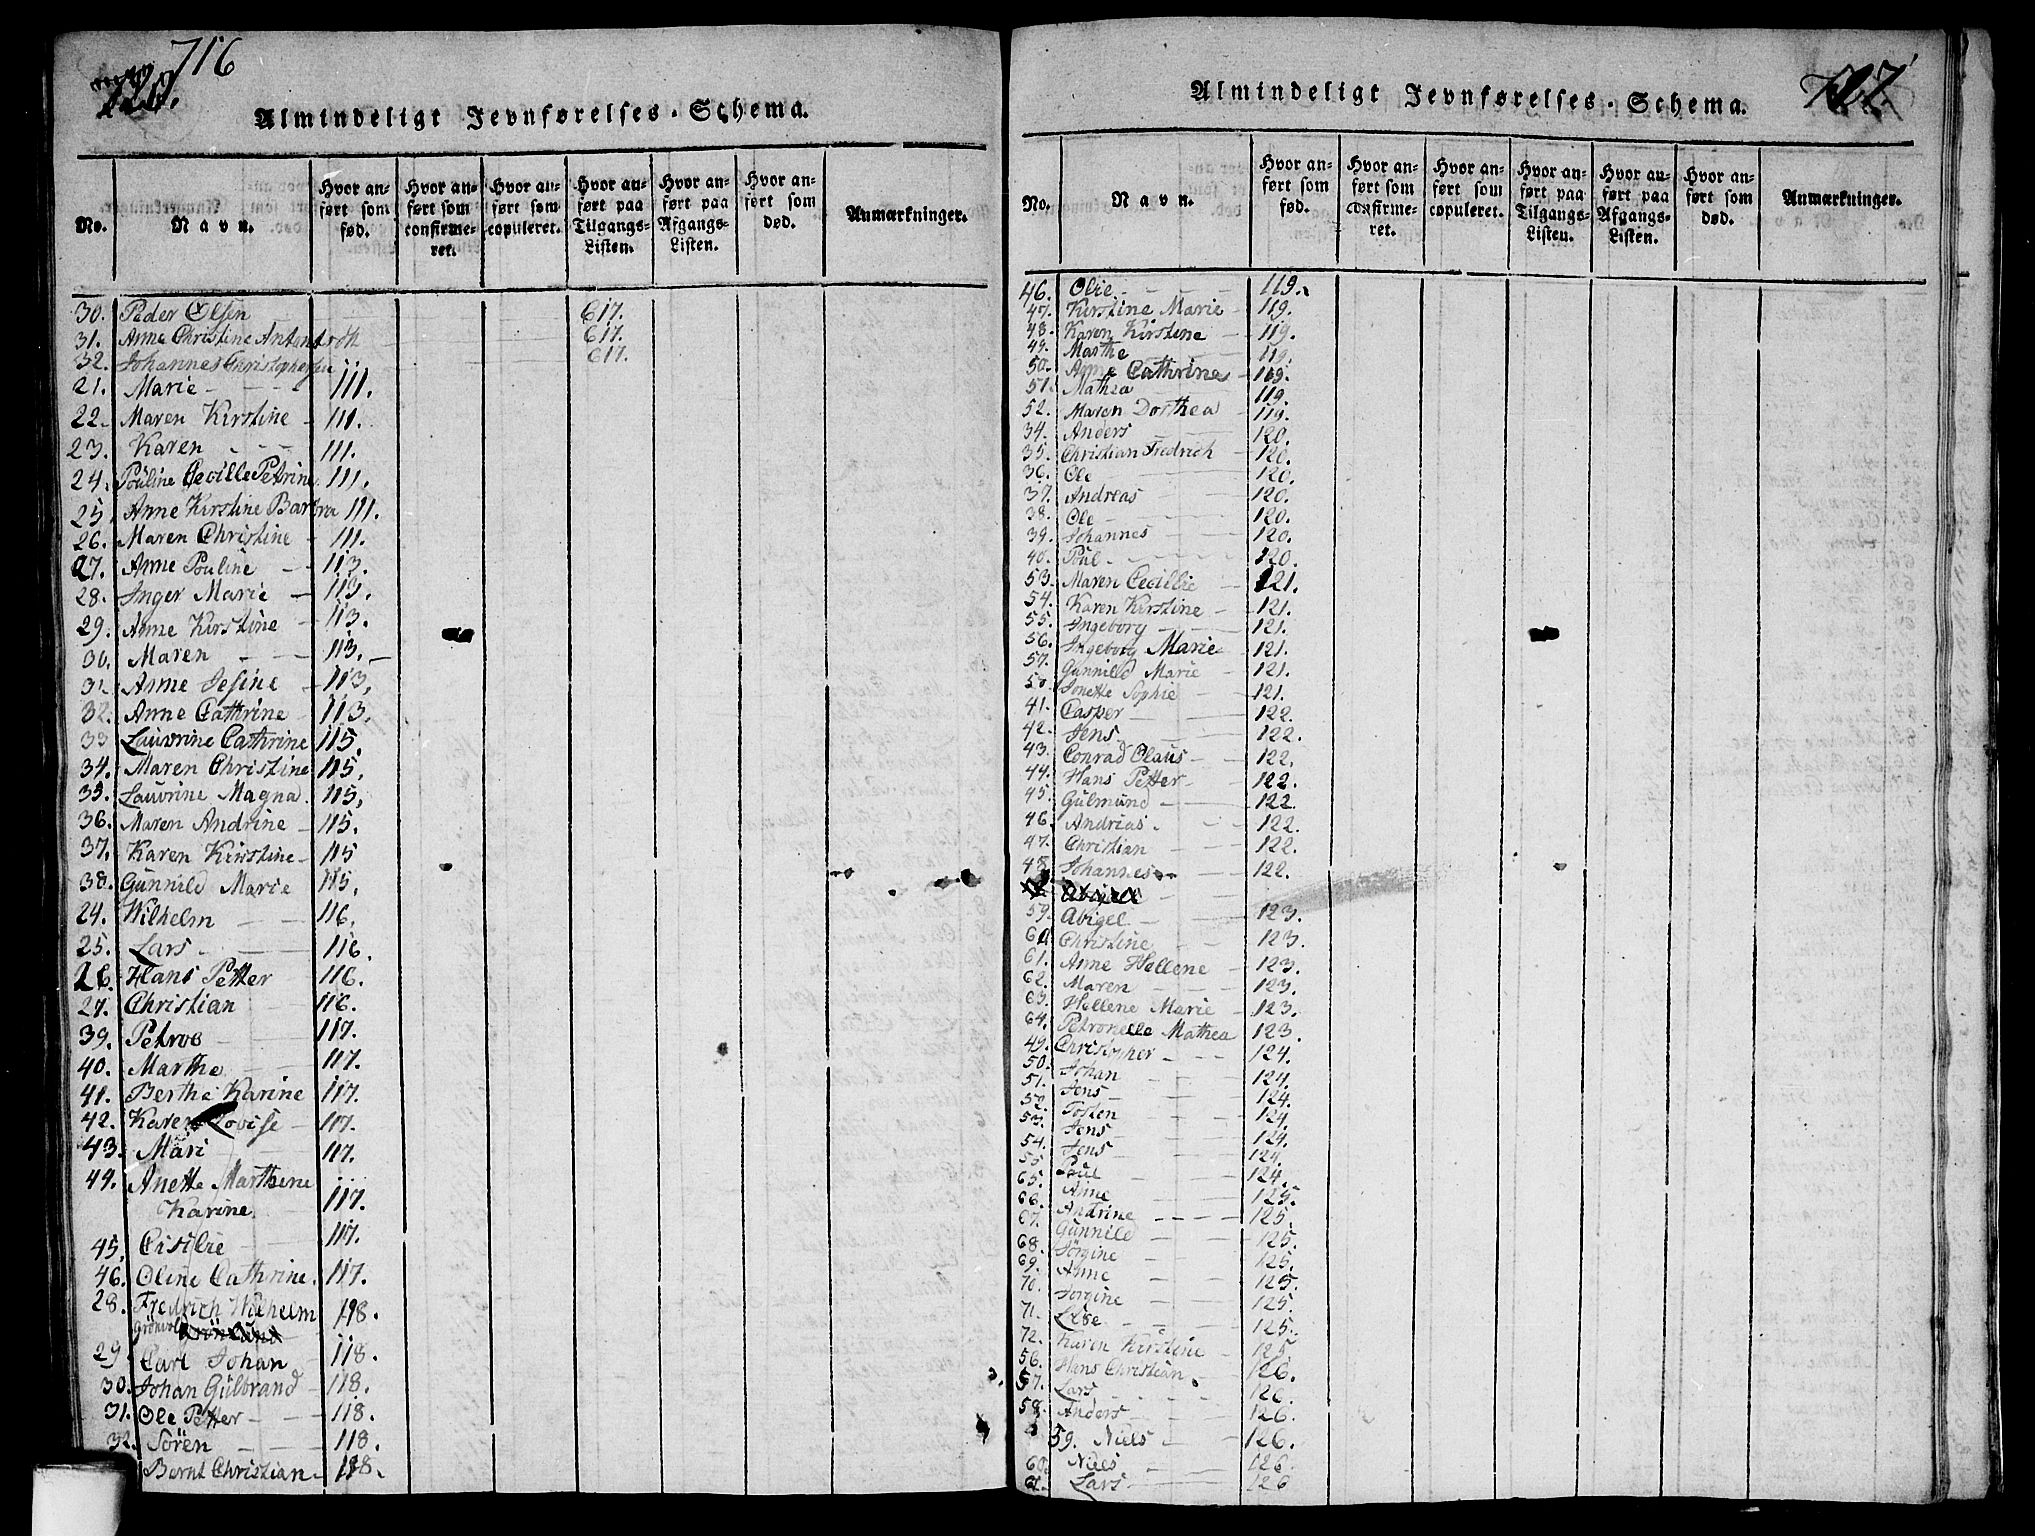 716
720.
Almindeligt Jevnførelses-Schema.
No.
Navn.
Hvor an-
ført som
fød.
Hvor an-
ført som
confirme-
ret.
Hvor an-
ført som
copuleret.
Hvor an-
ført paa
Tilgangs-
Listen.
Hvor an-
ført paa
Afgangs-
Listen.
Hvor an-
ført som
død.
Anmærkninger.
30. Peder Olsen 617.
31. Anne Christine Antonsdtr 617.
32. Johannes Christophersen 617.
21. Marie 111.
22. Maren Kirstine 111.
23. Karen 111.
24. Pouline Cecille Petrine 111.
25. Anne Kirstine Barbra 111.
26. Maren Christine 111.
27. Anne Pouline 113.
28. Inger Marie 113.
29. Anne Kirstine 113.
30. Maren 113.
31. Anne Jesine 113.
32. Anne Cathrine 113.
33. Lauvrine Cathrine 115.
34. Maren Christine 115.
35. Lauvrine Magna 115.
36. Maren Andrine 115.
37. Karen Kirstine 115
38. Gunnild Marie 115.
24. Wilhelm 116.
25. Lars 116.
26. Hans Petter 116.
27. Christian 116.
39. Petroe 117.
40. Marthe 117.
41. Berthe Karine 117.
42. Karen Lovise 117.
43. Mari 117.
44. Anette Marthene
Karine 117.
45. Cisilie 117.
46. Oline Cathrine 117.
28. Fredrich Wilhelm 118.
29. Carl Johan 118.
30. Johan Gulbrand 118.
31. Ole Petter 118.
32. Sören 118.
Bernt Christian 118.
Almindeligt Jevnførelses-Schema.
No.
Navn.
Hvor an-
ført som
fød.
Hvor an-
ført som
confirme-
ret.
Hvor an-
ført som
copuleret.
Hvor an-
ført paa
Tilgangs-
Listen.
Hvor an-
ført paa
Afgangs-
Listen.
Hvor an-
ført som
død.
Anmærkninger.
46. Olie 119.
47. Kirstine Marie 119.
48. Karen Kirstine 119.
49. Marthe 119.
50. Anne Cathrine 119.
51. Mathea 119.
52. Maren Dorthea 119.
34. Anders 120.
35. Christian Fredrich 120.
36. Ole 120.
37. Andreas 120.
38. Ole 120.
39. Johannes 120.
40. Poul 120.
53. Maren Cecillie 121.
54. Karen Kirstine 121.
55. Ingeborg 121.
56. Ingeborg Marie 121.
57. Gunnild Marie 121.
58. Jonette Sophie 121.
41. Casper 122.
42. Jens 122.
43. Conrad Claus 122.
44. Hans Petter 122.
45. Gulmund 122.
46. Andrias 122.
47. Christian 122.
48. Johannes 122.
59. Abigel 123.
60 Christine 123.
61. Anne Hellene 123.
62. Maren 123.
63. Hellene Marie 123.
64. Petronelle Mathea 123.
49. Christopher 124.
50. Johan 124.
51. Jens 124.
52. Tosten 124.
53. Jens 124.
54. Jens 124.
55 Poul 124.
65. Anne 125.
66. Andrine 125.
67. Gunnild 125.
68. Jörgine 125.
69. Anne 125.
70. Jorgine 125.
71. Lise 125.
72. Karen Kirstine 125.
56. Hans Christian 126.
57. Lars 126.
58. Anders 126.
59. Niels 126.
60. Niels 126.
61. Lars 126